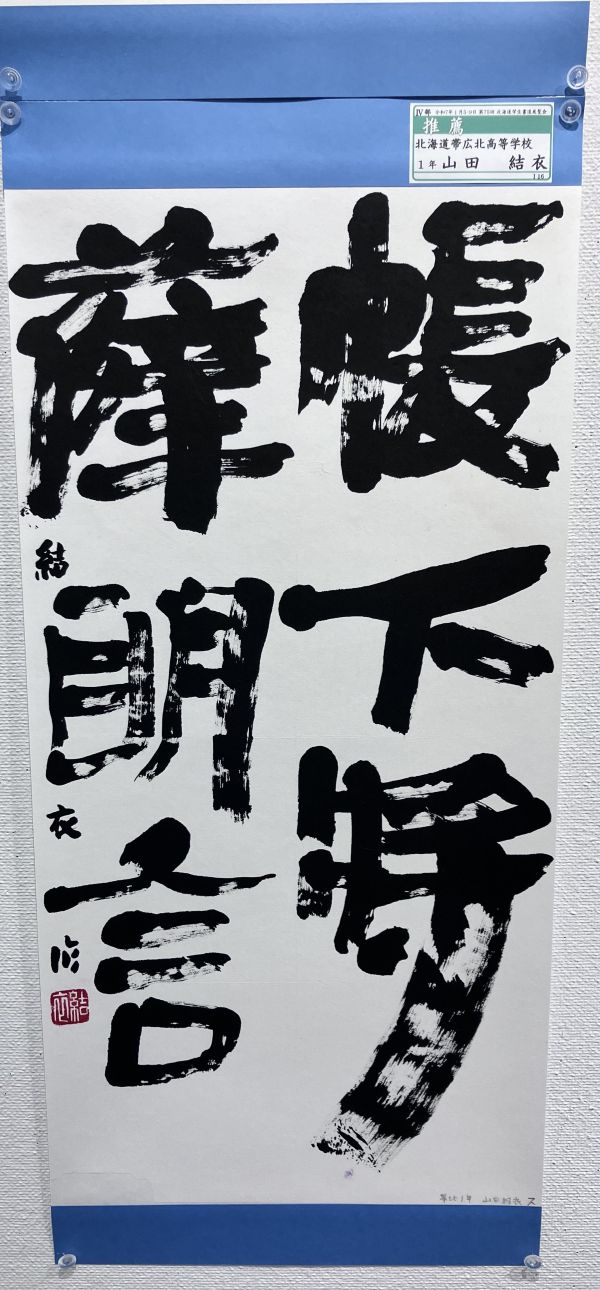 Ⅳ部 令和7年1月5-9日 第75回 北海道学生書道展覧会
推薦
北海道帯広北高等学校
1年 山田 結衣
116
帳下将
薛朗言
結衣臨
結衣